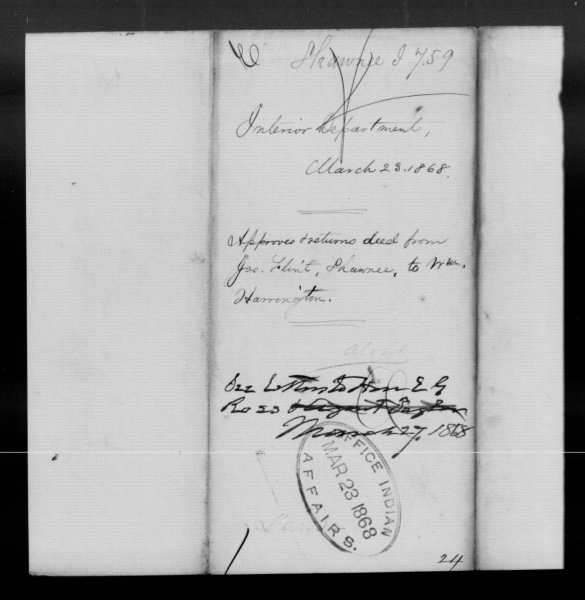 Shawnee I 759
Interior Department,
March 23. 1868.
Approves & returns deed from
Jas. Flint, Shawnee, to Wm.
Harrington.
See Letters to Hon E G
Ross
March 27, 1868
OFFICE INDIAN
MAR 23 1868
AFFAIRS.
24